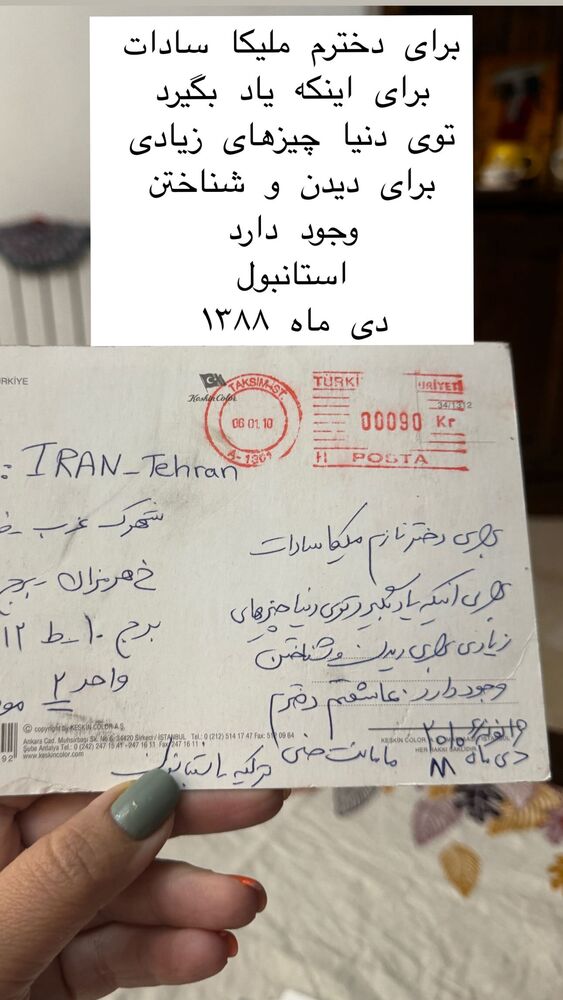 برای دخترم ملیکا سادات
برای اینکه یاد بگیرد
توی دنیا چیزهای زیادی
برای دیدن و شناختن
وجود دارد
استانبول
دی ماه ۱۳۸۸
ÜRKİYE
Keskin Color
TAKSİM-İST.
06 01 10
A-1961
TÜRKİ URİYETİ
34/1312
00090 Kr
POSTA
: IRAN-Tehran
شهرک غرب
خ هرمزان برج
برج ۱۰ ط ۱۲
واحد ۲
برای دختر نازم ملیکا سادات
برای اینکه یاد بگیرد توی دنیا چیزهای
زیادی برای دیدن و شناختن
وجود دارد. عاشقتم دخترم
دی ماه ۸۸
مامانت
ترکیه استانبول
© copyright by KESKİN COLOR A.Ş.
Ankara Cad. No:6 34420 Sirkeci / İSTANBUL Tel.: 0 (212) 514 17 47 Fax: 512 09 64
Şube Antalya Tel.: 0 (242) 247 15 41 - 247 16 11 Fax: 247 16 11
www.keskincolor.com
KESKİN COLOR
HER HAKKI SAKLIDIR
92